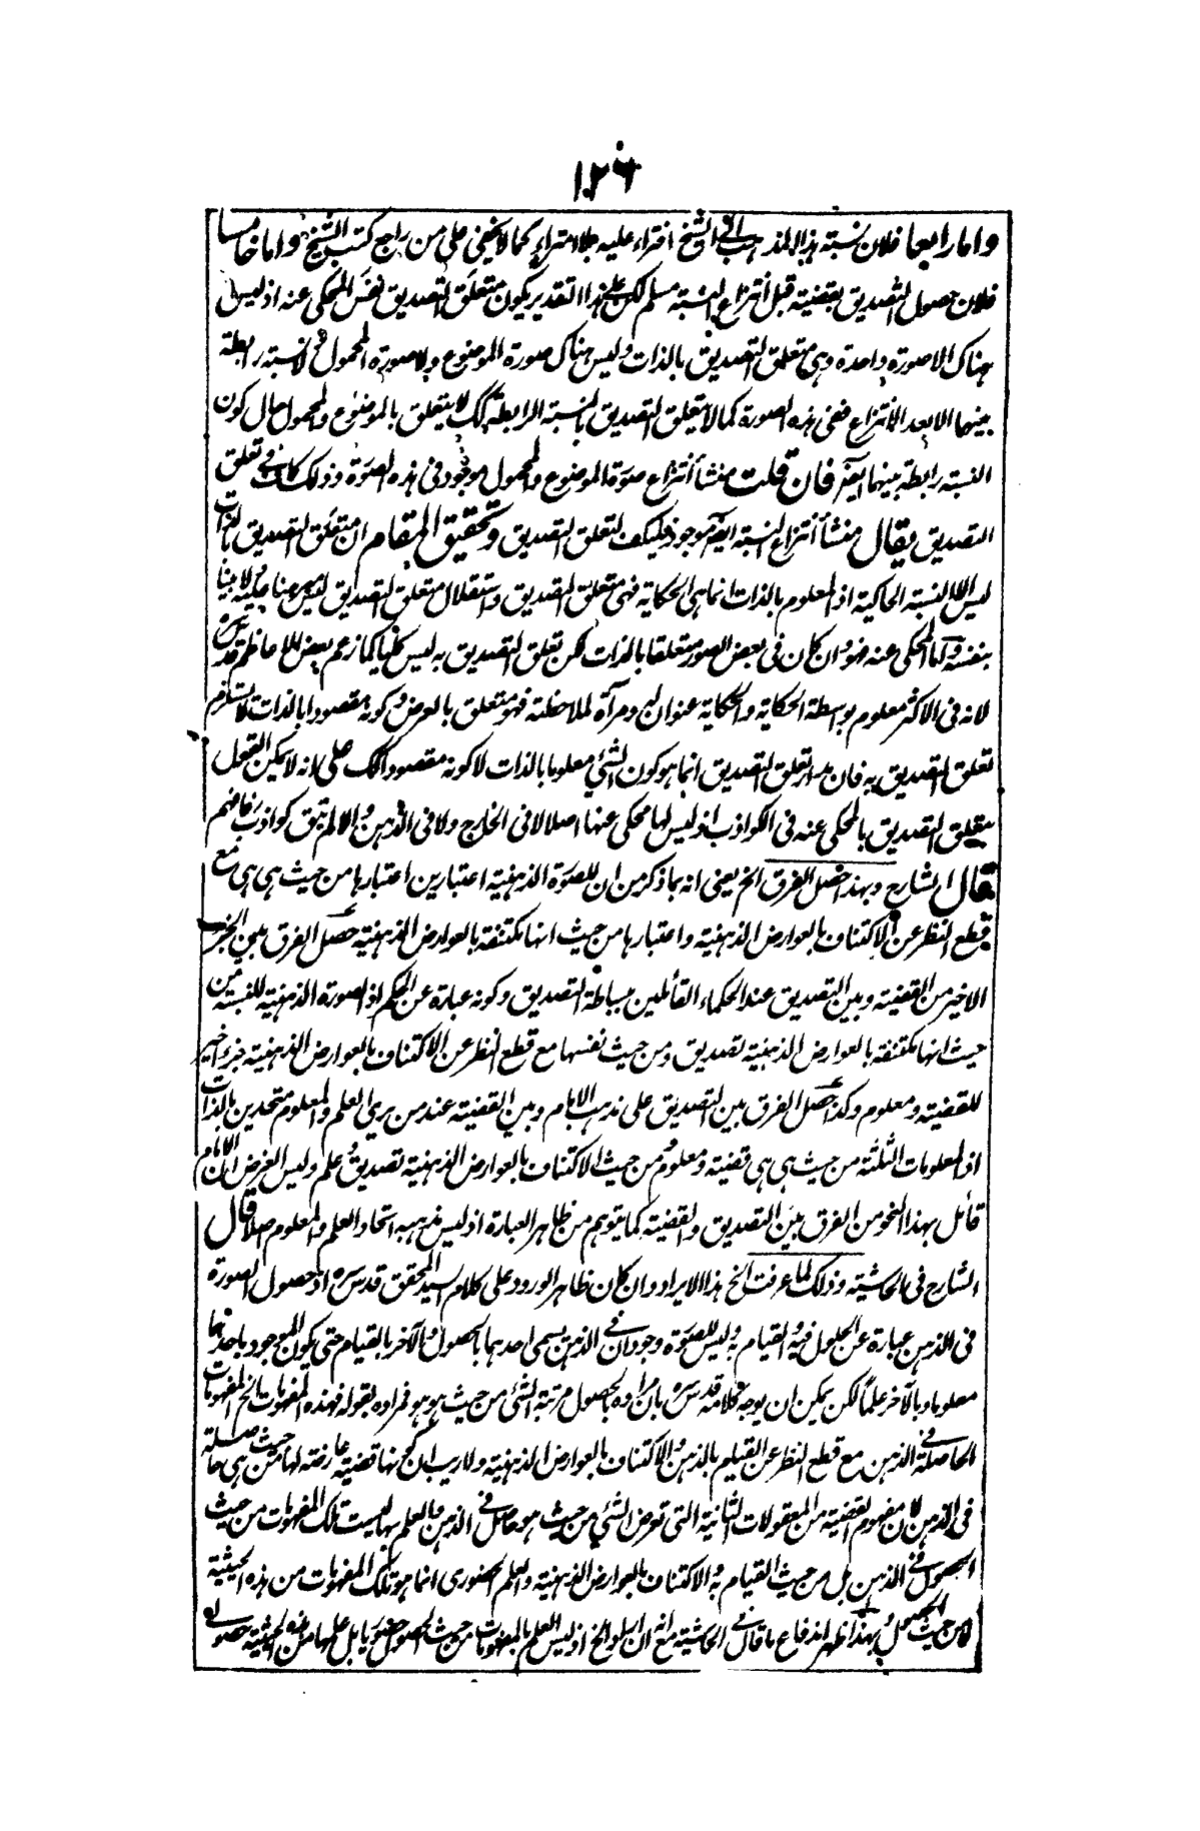 ١٢٦
واما رابعا فلان نسبة هذا المذهب الى الشيخ افتراء عليه بلا امتراء كما لا يخفى على من راجع كتب الشيخ واما خامسا
فلان حصول التصديق بقضية قبل انتزاع النسبة مسلم لكن على هذا التقدير يكون متعلق التصديق نفس المحكى عنه اذ ليس
هناك الا صورة واحدة وهى متعلق التصديق بالذات وليس هناك صورة الموضوع ولا صورة المحمول ولا نسبة رابطة
بينهما الا بعد الانتزاع ففى هذه الصورة كما لا يتعلق التصديق بالنسبة الرابطة كك لا يتعلق بالموضوع والمحمول حال كون
النسبة رابطة بينهما ايضا فان قلت منشأ انتزاع صورة الموضوع والمحمول موجود فى هذه الصورة وذلك كاف فى تعلق
التصديق يقال منشأ انتزاع النسبة ايضا موجود فليكف لتعلق التصديق وتحقيق المقام ان متعلق التصديق بالذات
ليس الا النسبة الحاكية اذ المعلوم بالذات انما هى الحكاية فهى متعلق التصديق واستقلال متعلق التصديق ليس مبينا عليه ولا بينا
بنفسه واما المحكى عنه فهو وان كان فى بعض الصور متعلقا بالذات لكن تعلق التصديق به ليس كليا كما زعم بعض الاعاظم قدس سره
لانه فى الاكثر معلوم بواسطة الحكاية والحكاية عنوان له ومرآة لملاحظته فهو متعلق بالعرض وكونه مقصودا بالذات لا يستلزم
تعلق التصديق به فان مدار تعلق التصديق انما هو كون الشئ معلوما بالذات لا كونه مقصودا كك على انه لا يمكن القول
بتعلق التصديق بالمحكى عنه فى الكواذب اذ ليس لها محكى عنها اصلا لا فى الخارج ولا فى الذهن والا لم تبق كواذب فافهم
قال الشارح وبهذا حصل الفرق الخ يعنى انه بما ذكر من ان للصورة الذهنية اعتبارين اعتبارها من حيث هى هى مع
قطع النظر عن الاكتناف بالعوارض الذهنية واعتبارها من حيث انها مكتنفة بالعوارض الذهنية حصل الفرق بين الجزء
الاخير من القضية وبين التصديق عند الحكماء القائلين ببساطة التصديق وكونه عبارة عن الحكم اذ الصورة الذهنية للنسبة من
حيث انها مكتنفة بالعوارض الذهنية تصديق ومن حيث نفسها مع قطع النظر عن الاكتناف بالعوارض الذهنية جزء اخير
للقضية ومعلوم وكذا حصل الفرق بين التصديق على مذهب الامام وبين القضية عند من يرى العلم والمعلوم متحدين بالذات
اذ المعلومات الثلثة من حيث هى هى قضية ومعلوم ومن حيث الاكتناف بالعوارض الذهنية تصديق وعلم وليس الغرض ان الامام
قائل بهذا النحو من الفرق بين التصديق والقضية كما يتوهم من ظاهر العبارة اذ ليس مذهبه اتحاد العلم والمعلوم اصلا قال
الشارح فى الحاشية وذلك لما عرفت الخ هذا الايراد وان كان ظاهر الورود على كلام السيد المحقق قدس سره اذ حصول الصورة
فى الذهن عبارة عن الحلول فيه والقيام به وليس للصورة وجودان فى الذهن يسمى احدهما بالحصول والآخر بالقيام حتى يكون الموجود باحدهما
معلوما وبالآخر علما لكن يمكن ان يوجه كلامه قدس سره بان مراده بالحصول مرتبة الشئ من حيث هو هو فمراده بقوله فهذه المفهومات الخ المفهومات
الحاصلة فى الذهن مع قطع النظر عن القيام بالذهن والاكتناف بالعوارض الذهنية ولا ريب ان كونها قضية عارضة لها من حيث هى حاصلة
فى الذهن لان مفهوم القضية من المعقولات الثانية التى تعرض الشئ من حيث هو حاصل فى الذهن والعلم بها ليست تلك المفهومات من حيث
الحصول فى الذهن بل من حيث القيام به والاكتناف بالعوارض الذهنية والعلم الحضورى انما هو بتلك المفهومات من هذه الحيثية
لا من حيث الحصول وبهذا ظهر اندفاع ما قال فى الحاشية مع ان اسلوب الخ اذ ليس العلم بالمفهومات من حيث الحصول حضوريا بل علمها من هذه الحيثية حصولى